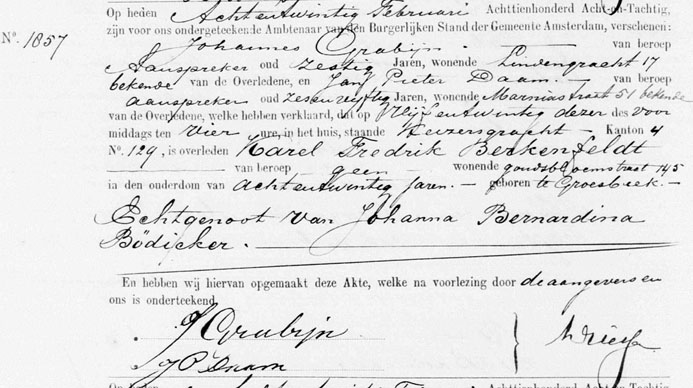 Op heden Achtentwintig Februari Achttienhonderd Acht-en-Tachtig,
zijn voor ons ondergeteekende Ambtenaar van den Burgerlijken Stand der Gemeente Amsterdam, verschenen:
No. 1857
Johannes Grabijn van beroep
Aanspreker oud zestig Jaren, wonende Lindengracht 17
bekende van de Overledene, en Jan Pieter Daam van beroep
aanspreker oud zesenvijftig Jaren, wonende Marnixstraat 51 bekende
van de Overledene, welke hebben verklaard, dat op Vijfentwintig dezer des voor
middags ten Vier ure, in het huis, staande Keizersgracht Kanton 4
No. 129, is overleden Karel Fredrik Berkenfeldt
van beroep geen wonende goudsbloemstraat 145
in den ouderdom van achtentwintig Jaren. geboren te Groesbeek.
Echtgenoot van Johanna Bernardina
Bödijcker.
En hebben wij hiervan opgemaakt deze Akte, welke na voorlezing door de aangevers en
ons is onderteekend.
J Grabijn
J P Daam
Op heden Achttienhonderd Acht-en-Tachtig,